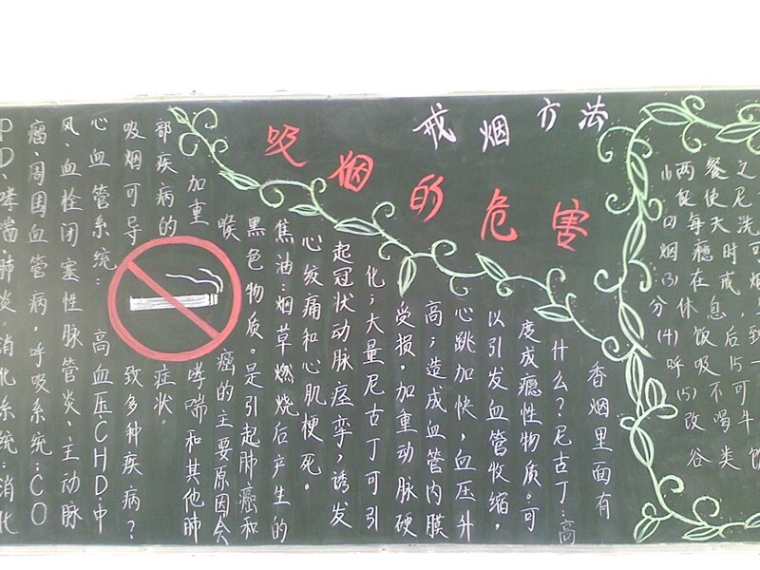 戒烟方法
吸烟的危害
(1)两餐之
促使尼
(2)每天洗
(3)在戒烟
(4)饭后
改喝牛
谷类
香烟里面有
什么?尼古丁:高
度成瘾性物质。可
以引发血管收缩,
心跳加快,血压升
高;造成血管内膜
受损。加重动脉硬
化;大量尼古丁可引
起冠状动脉痉挛,诱发
心绞痛和心肌梗死。
焦油:烟草燃烧后产生的
黑色物质。是引起肺癌和
喉癌的主要原因会
加重哮喘和其他肺
部疾病的症状。
吸烟可导致多种疾病?
心血管系统:高血压CHD.中
风、血栓闭塞性脉管炎、主动脉
瘤、周围血管病。呼吸系统:CO
PD、哮喘肺炎。消化系统:消化